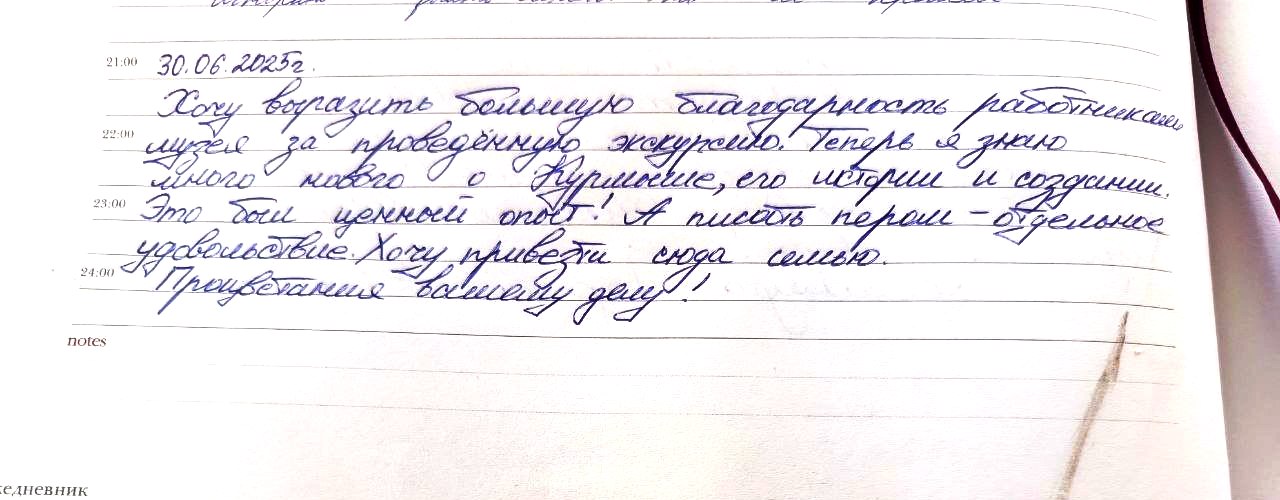 21:00 30.06.2025г.
Хочу выразить большую благодарность работникам
22:00 музея за проведённую экскурсию. Теперь я знаю
много нового о Курмыше, его истории и создании.
23:00 Это был ценный опыт! А писать пером – отдельное
удовольствие. Хочу привезти сюда семью.
24:00 Процветания вашему делу!
notes
жедневник